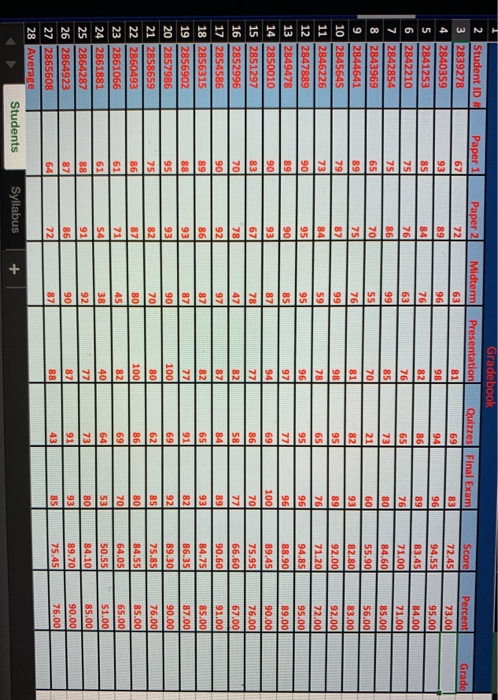 1 Gradebook
2 Student ID # Paper 1 Paper 2 Midterm Presentation Quizzes Final Exam Score Percent Grade
3 2839278 67 72 63 81 69 83 72.45 73.00
4 2840359 93 89 96 98 94 96 94.55 95.00
5 2841253 85 84 76 82 86 89 83.45 84.00
6 2842210 75 76 63 76 65 76 71.00 71.00
7 2842854 75 86 99 85 73 80 84.60 85.00
8 2843969 65 70 55 70 21 60 55.90 56.00
9 2844641 89 75 76 81 82 93 82.80 83.00
10 2845645 79 87 99 98 95 89 92.00 92.00
11 2846226 73 84 59 78 65 76 71.20 72.00
12 2847889 90 95 95 96 95 96 94.85 95.00
13 2849478 89 90 85 97 77 96 88.90 89.00
14 2850010 90 93 87 94 69 100 89.45 90.00
15 2851297 83 67 78 77 86 70 75.95 76.00
16 2852996 70 78 47 82 58 77 66.60 67.00
17 2854586 90 92 97 87 84 89 90.60 91.00
18 2856315 89 86 87 82 65 93 84.75 85.00
19 2856902 88 93 87 77 91 82 86.35 87.00
20 2857986 95 93 90 100 69 92 89.30 90.00
21 2858659 75 82 70 80 62 85 75.85 76.00
22 2860493 86 87 80 100 86 80 84.55 85.00
23 2861066 61 71 45 82 69 70 64.05 65.00
24 2861881 61 54 38 40 64 53 50.55 51.00
25 2864287 88 91 92 77 73 80 84.10 85.00
26 2864923 87 86 90 87 91 93 89.70 90.00
27 2865608 64 72 87 88 43 85 75.45 76.00
28 Average
Students Syllabus +